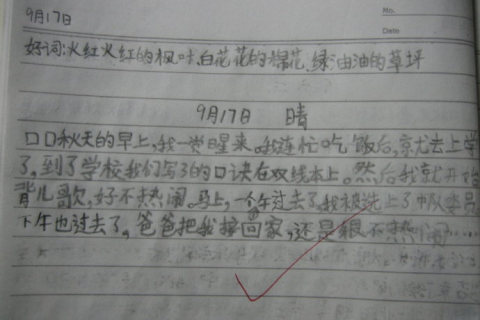 No.
9月17日
Date
好词:火红火红的枫叶、白花花的棉花、绿油油的草坪
9月17日 晴
口口秋天的早上,我一觉醒来。我连忙吃饭后,就去上学
了。到了学校我们写了的口诀在双线本上。然后我就开始
背儿歌,好不热闹。马上,一个午过去了,我被选上了中队委员
下午也过去了。爸爸把我接回家,还是很不热闹……